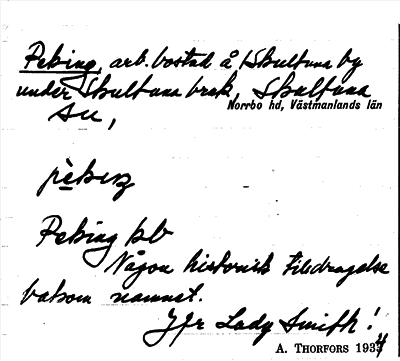 Peking, arb. bostad å Skultuna by
under Skultuna bruk, Skultuna
Norrbo hd, Västmanlands län
sn,
pèkıŋ
Peking kb
Någon historisk tilldragelse
bakom namnet.
Jfr Lady Smith!
A. Thorfors 1934